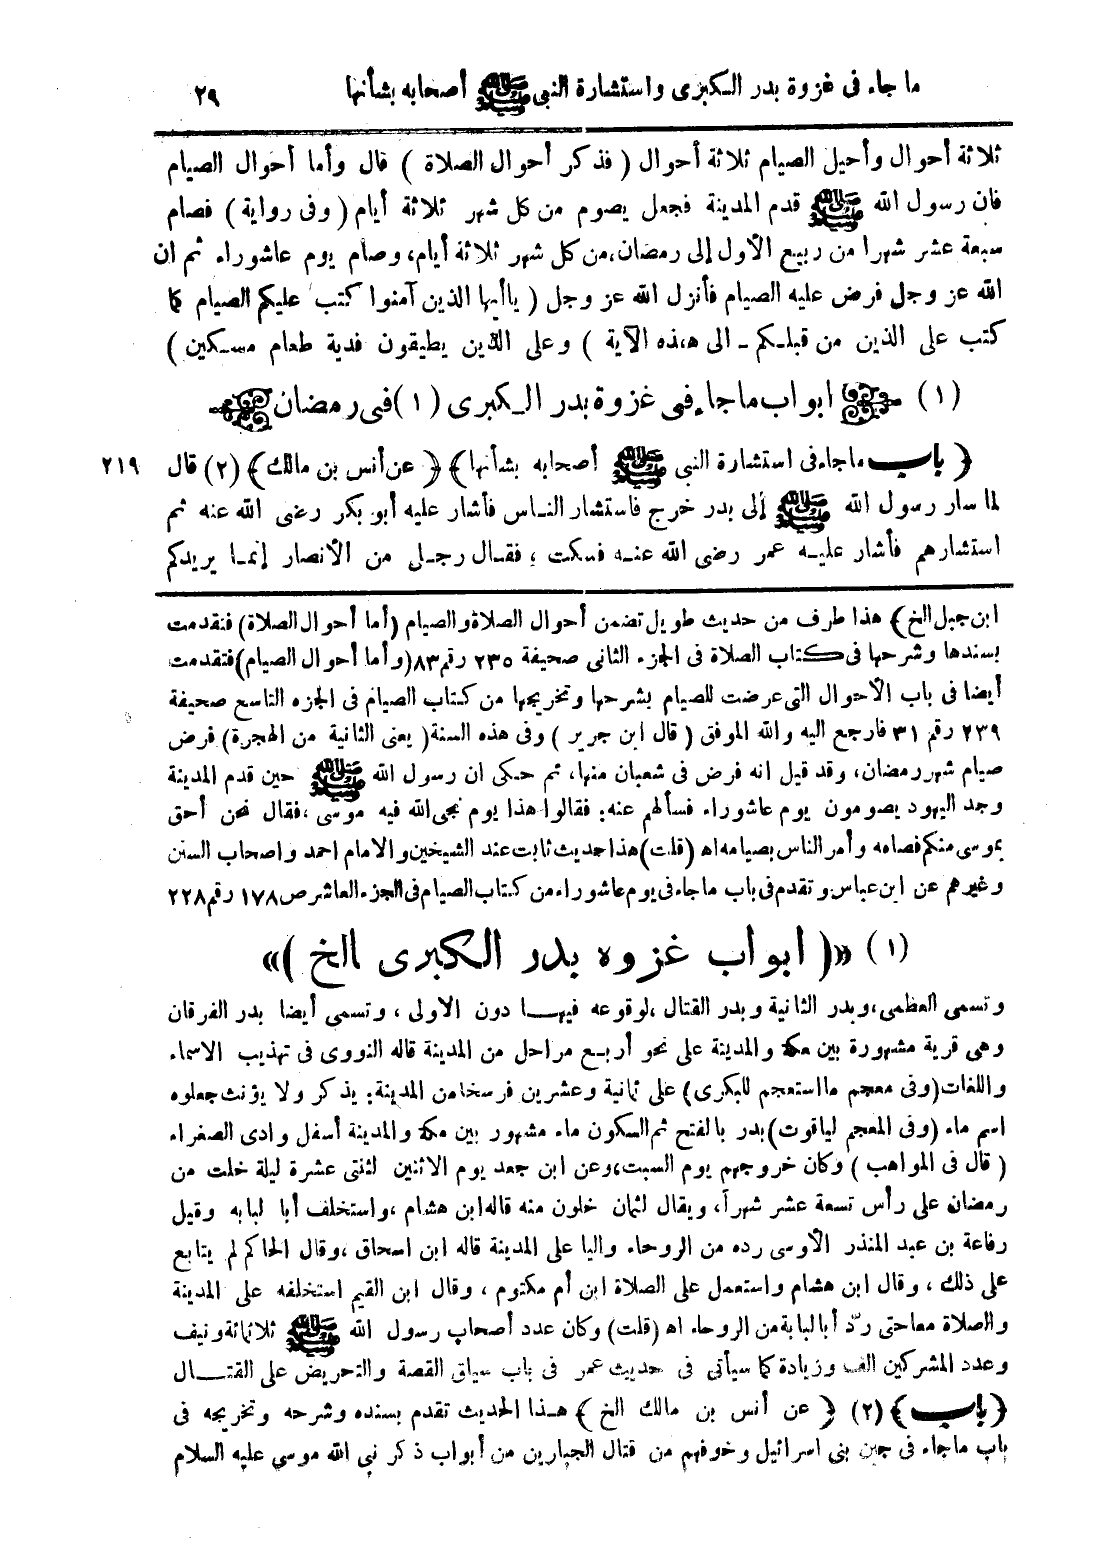 ما جاء فى غزوة بدر الكبرى واستشارة النبى ﷺ أصحابه بشأنها ٢٩
ثلاثة أحوال وأحيل الصيام ثلاثة أحوال ( فذكر أحوال الصلاة ) قال وأما أحوال الصيام
فان رسول الله ﷺ قدم المدينة فجعل يصوم من كل شهر ثلاثة أيام ( وفى رواية ) فصام
سبعة عشر شهرا من ربيع الأول إلى رمضان، من كل شهر ثلاثة أيام، وصام يوم عاشوراء ثم ان
الله عز وجل فرض عليه الصيام فأنزل الله عز وجل ( ياأيها الذين آمنوا كتب عليكم الصيام كما
كتب على الذين من قبلكم ـ الى هذه الآية ) وعلى الذين يطيقون فدية طعام مسكين )
(١) ابواب ماجاء فى غزوة بدر الكبرى (١) فى رمضان
﴿ باب ماجاء فى استشارة النبى ﷺ أصحابه بشأنها ﴾ ﴿ عن أنس بن مالك ﴾ (٢) قال ٢١٩
لما سار رسول الله ﷺ إلى بدر خرج فاستشار الناس فأشار عليه أبو بكر رضى الله عنه ثم
استشارهم فأشار عليه عمر رضى الله عنه فسكت ، فقال رجل من الأنصار إنما يريدكم
ابن جبل الخ ﴾ هذا طرف من حديث طويل تضمن أحوال الصلاة والصيام (أما أحوال الصلاة) فتقدمت
بسندها وشرحها فى كتاب الصلاة فى الجزء الثانى صحيفة ٢٣٥ رقم ٨٣ (وأما أحوال الصيام) فتقدمت
أيضا فى باب الأحوال التى عرضت للصيام بشرحها وتخريجها من كتاب الصيام فى الجزء التاسع صحيفة
٢٣٩ رقم ٣١ فارجع اليه والله الموفق ( قال ابن جرير ) وفى هذه السنة ( يعنى الثانية من الهجرة) فرض
صيام شهر رمضان، وقد قيل انه فرض فى شعبان منها، ثم حكى ان رسول الله ﷺ حين قدم المدينة
وجد اليهود يصومون يوم عاشوراء فسألهم عنه: فقالوا هذا يوم نجى الله فيه موسى ، فقال نحن أحق
بموسى منكم فصامه وأمر الناس بصيامه اه (قلت) هذا حديث ثابت عند الشيخين والامام احمد واصحاب السنن
وغيرهم عن ابن عباس وتقدم فى باب ما جاء فى يوم عاشوراء من كتاب الصيام فى الجزء العاشر ص ١٧٨ رقم ٢٢٨
(١) «( ابواب غزوه بدر الكبرى الخ )»
وتسمى العظمى، وبدر الثانية وبدر القتال ،لوقوعه فيها دون الاولى ، وتسمى أيضا بدر الفرقان
وهى قرية مشهورة بين مكة والمدينة على نحو أربع مراحل من المدينة قاله النووى فى تهذيب الاسماء
واللغات (وفى معجم ما استعجم للبكرى) على ثمانية وعشرين فرسخا من المدينة: يذكر ولا يؤنث جعلوه
اسم ماء (وفى المعجم لياقوت) بدر بالفتح ثم السكون ماء مشهور بين مكة والمدينة أسفل وادى الصفراء
( قال فى المواهب ) وكان خروجهم يوم السبت، وعن ابن جعد يوم الاثنين لثنتى عشرة ليلة خلت من
رمضان على رأس تسعة عشر شهراً، ويقال لثمان خلون منه قاله ابن هشام ،واستخلف أبا لبابه وقيل
رفاعة بن عبد المنذر الأوسى رده من الروحاء واليا على المدينة قاله ابن اسحاق ،وقال الحاكم لم يتابع
على ذلك ، وقال ابن هشام واستعمل على الصلاة ابن أم مكتوم ، وقال ابن القيم استخلفه على المدينة
والصلاة معا حتى ردّ أبا لبابة من الروحاء اه (قلت) وكان عدد أصحاب رسول الله ﷺ ثلاثمائة ونيف
وعدد المشركين الف وزيادة كما سيأتى فى حديث عمر فى باب سياق القصة والتحريض على القتال
﴿ باب ﴾ (٢) ﴿ عن أنس بن مالك الخ ﴾ هذا الحديث تقدم بسنده وشرحه وتخريجه فى
باب ماجاء فى جبن بنى اسرائيل وخوفهم من قتال الجبارين من أبواب ذكر نبى الله موسى عليه السلام